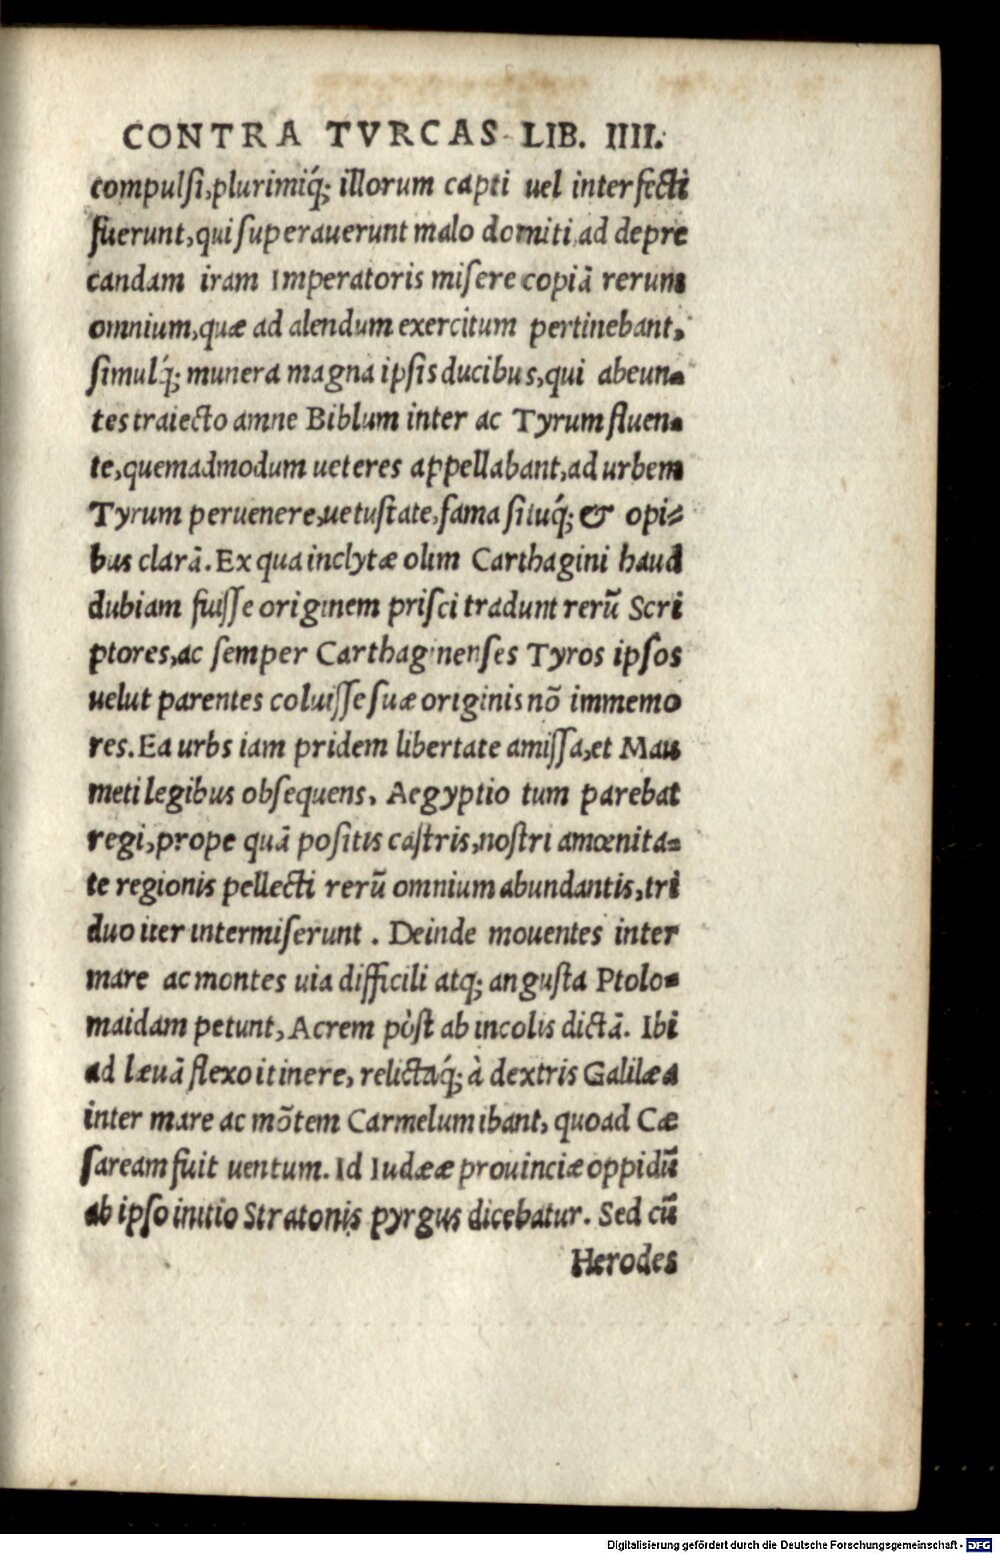 CONTRA TVRCAS LIB. IIII.
compulſi, plurimiq́; illorum capti uel interfecti
fuerunt, qui ſuperauerunt malo domiti, ad depre
candam iram Imperatoris miſere copiā rerum
omnium, quæ ad alendum exercitum pertinebant,
ſimulq́; munera magna ipſis ducibus, qui abeun-
tes traiecto amne Biblum inter ac Tyrum fluen-
te, quemadmodum ueteres appellabant, ad urbem
Tyrum peruenere, uetuſtate, fama ſituq́; & opi-
bus clarā. Ex qua inclytæ olim Carthagini haud
dubiam fuiſſe originem priſci tradunt rerū Scri
ptores, ac ſemper Carthaginenſes Tyros ipſos
uelut parentes coluiſſe ſuæ originis nō immemo
res. Ea urbs iam pridem libertate amiſſa, et Mau
meti legibus obſequens, Aegyptio tum parebat
regi, prope quā poſitis caſtris, noſtri amœnita-
te regionis pellecti rerū omnium abundantis, tri
duo iter intermiſerunt. Deinde mouentes inter
mare ac montes uia difficili atq; anguſta Ptolo-
maidam petunt, Acrem pòſt ab incolis dictā. Ibi
ad læuā flexo itinere, relictaq́; à dextris Galilæa
inter mare ac mōtem Carmelum ibant, quoad Cæ
ſaream fuit uentum. Id Iudææ prouinciæ oppidū
ab ipſo initio Stratonis pyrgus dicebatur. Sed cū
Herodes
Digitalisierung gefördert durch die Deutsche Forschungsgemeinschaft - DFG